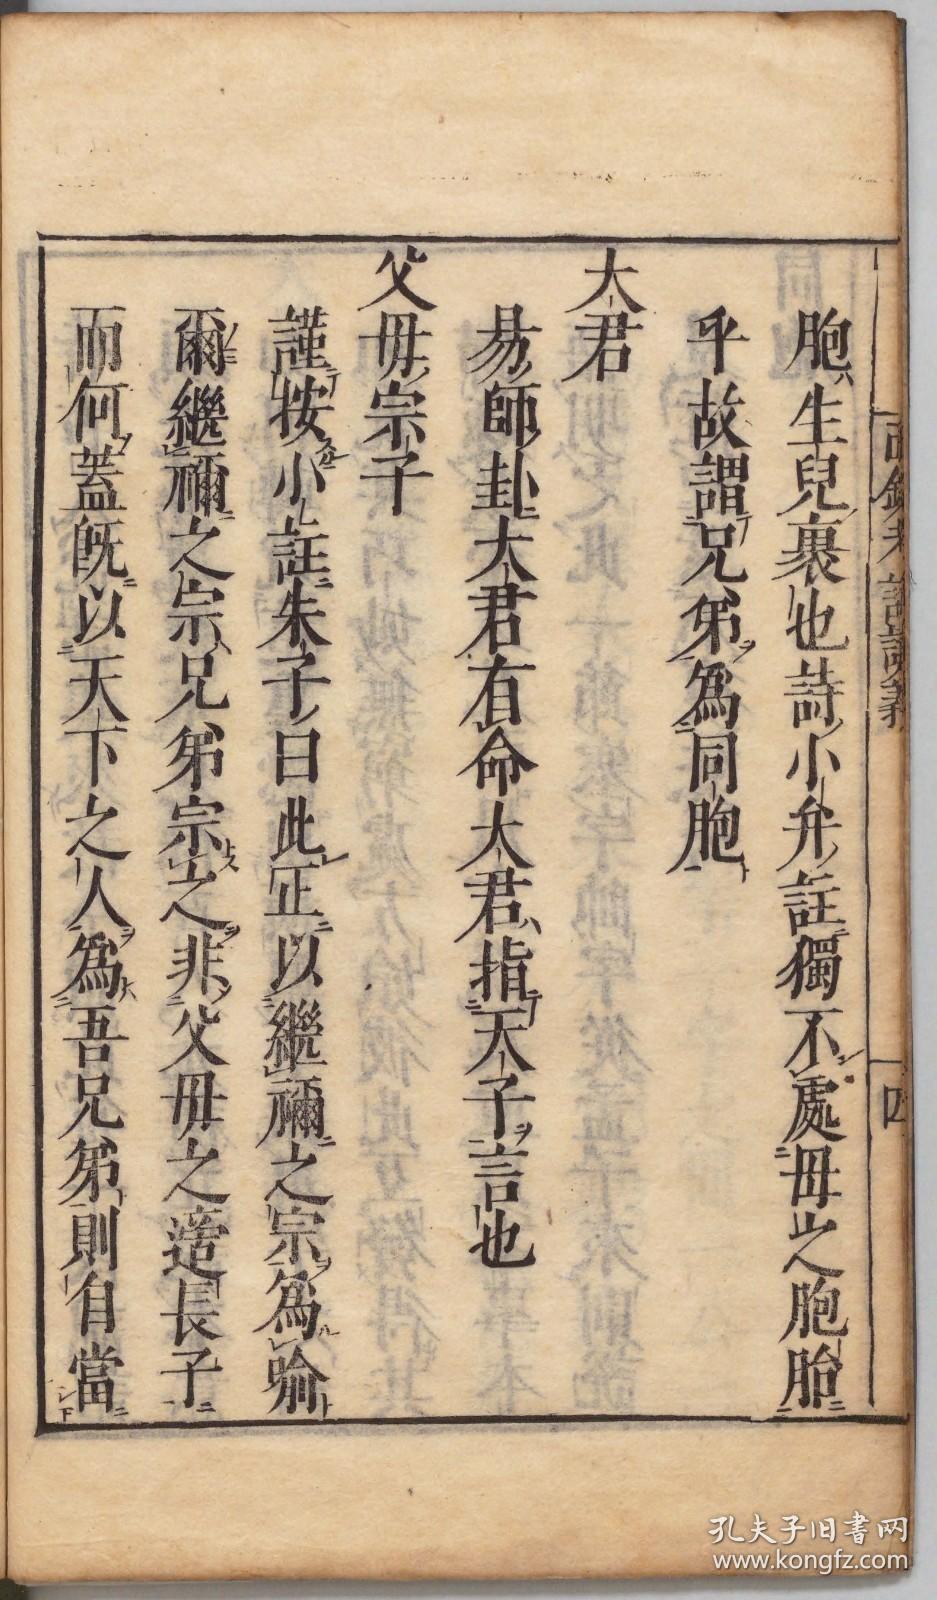 胞生兒裹也詩小弁註獨不處母之胞胎
乎故謂兄弟爲同胞
大君
易師卦大君有命大君指天子言也
父母宗子
謹按小註朱子曰此正以繼禰之宗爲喻
爾繼禰之宗兄弟宗之非父母之適長子
而何蓋既以天下之人爲吾兄弟則自當
四
孔夫子旧書网
www.kongfz.com